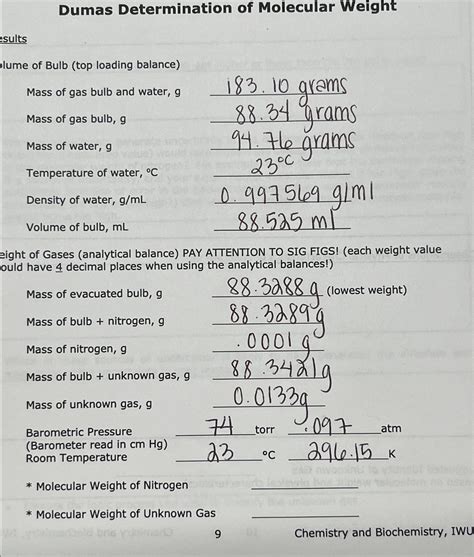 Dumas Determination of Molecular Weight
esults
lume of Bulb (top loading balance)
Mass of gas bulb and water, g 183.10 grams
Mass of gas bulb, g 88.34 grams
Mass of water, g 94.76 grams
Temperature of water, °C 23°C
Density of water, g/mL 0.997569 g/ml
Volume of bulb, mL 88.525 ml
eight of Gases (analytical balance) PAY ATTENTION TO SIG FIGS! (each weight value
ould have 4 decimal places when using the analytical balances!)
Mass of evacuated bulb, g 88.3288 g (lowest weight)
Mass of bulb + nitrogen, g 88.3289 g
Mass of nitrogen, g .0001 g
Mass of bulb + unknown gas, g 88.3421 g
Mass of unknown gas, g 0.0133g
Barometric Pressure 74 torr .097 atm
(Barometer read in cm Hg)
Room Temperature 23 °C 296.15 K
* Molecular Weight of Nitrogen
* Molecular Weight of Unknown Gas
9 Chemistry and Biochemistry, IWU